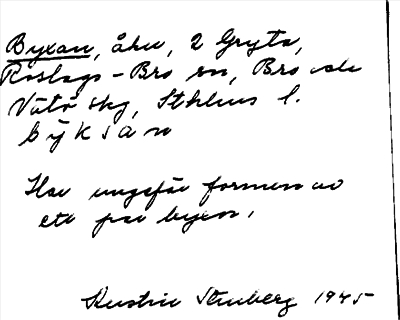 Byxan, åker, 2 Gryta,
Roslags-Bro sn, Bro och
Vätö skg, Sthlms l.
býksan
Har ungefär formen av
ett par byxor.
Kerstin Stenberg 1945